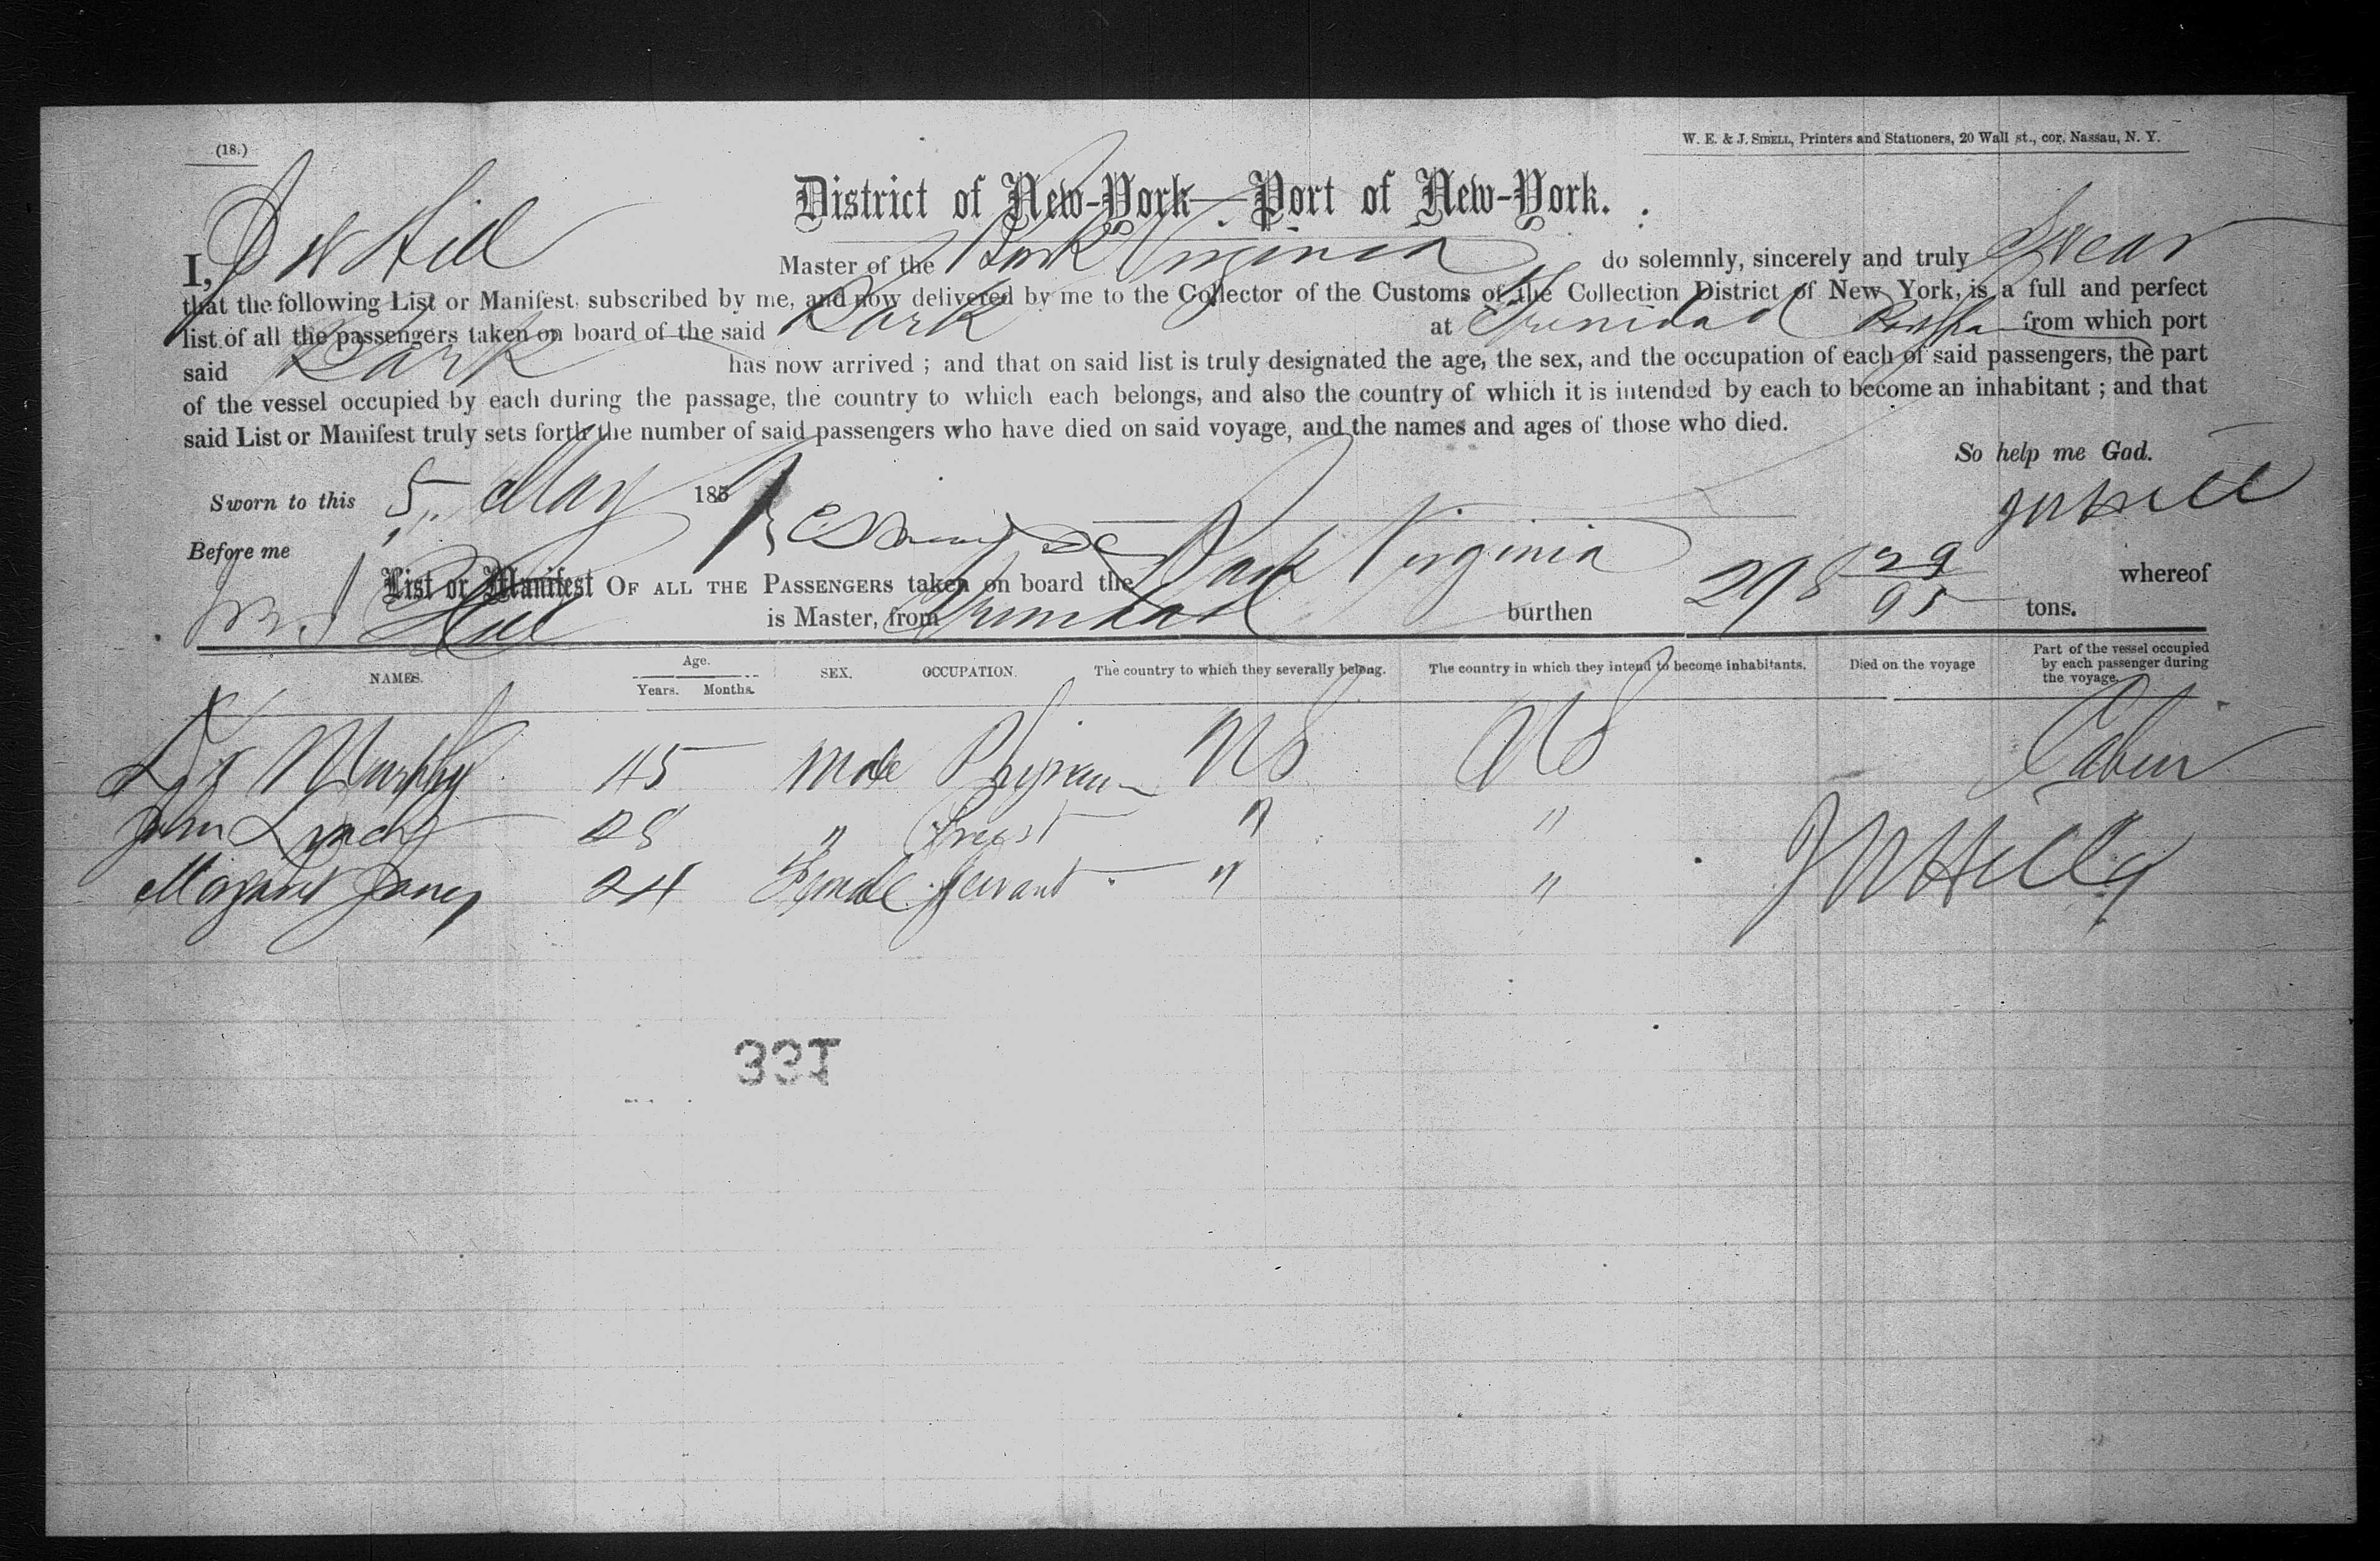 (18.)
W. E. & J. SIBELL, Printers and Stationers, 20 Wall st., cor. Nassau, N. Y.
District of New-York—Port of New-York.
I, J W Hill Master of the Bark Virginia do solemnly, sincerely and truly Swear
that the following List or Manifest, subscribed by me, and now delivered by me to the Collector of the Customs of the Collection District of New York, is a full and perfect
list of all the passengers taken on board of the said Bark at Trinidad from which port
said Bark has now arrived ; and that on said list is truly designated the age, the sex, and the occupation of each of said passengers, the part
of the vessel occupied by each during the passage, the country to which each belongs, and also the country of which it is intended by each to become an inhabitant ; and that
said List or Manifest truly sets forth the number of said passengers who have died on said voyage, and the names and ages of those who died.
So help me God.
Sworn to this 5 May 185
J W Hill
Before me
List or Manifest OF ALL THE PASSENGERS taken on board the Bark Virginia whereof
Hill is Master, from Trinidad burthen 298 29/95 tons.
NAMES. Age. Years. Months. SEX. OCCUPATION. The country to which they severally belong. The country in which they intend to become inhabitants. Died on the voyage Part of the vessel occupied by each passenger during the voyage.
Murphy 45 Male US US Cabin
John Lynch 28 " Priest " "
Margaret 24 Female Servant " "
J W Hill
331